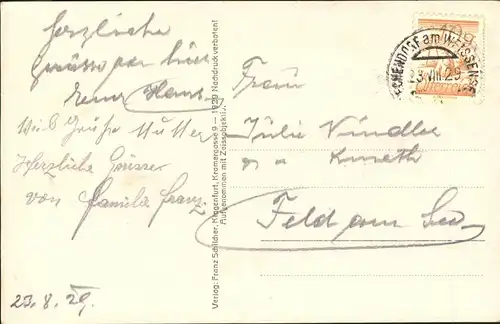 herzliche
Grüsse von hier
Hans
viele Grüße Mutter
Herzliche Grüsse
von Familie Franz.
23.8.29.
Verlag: Franz Schilcher, Klagenfurt, Kramergasse 9 — 1929 Nachdruck verboten!
Aufgenommen mit Zeissobjektiv.
10 g
ECHENDORF am WEISSENSEE
23.VIII.29
Frau
Julie Vindler
Feld am See